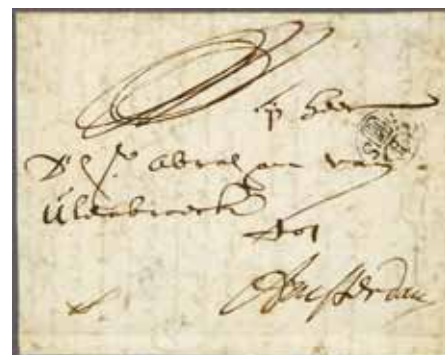 heer
abraham van
Ulenbroeck
tot
Amsterdam